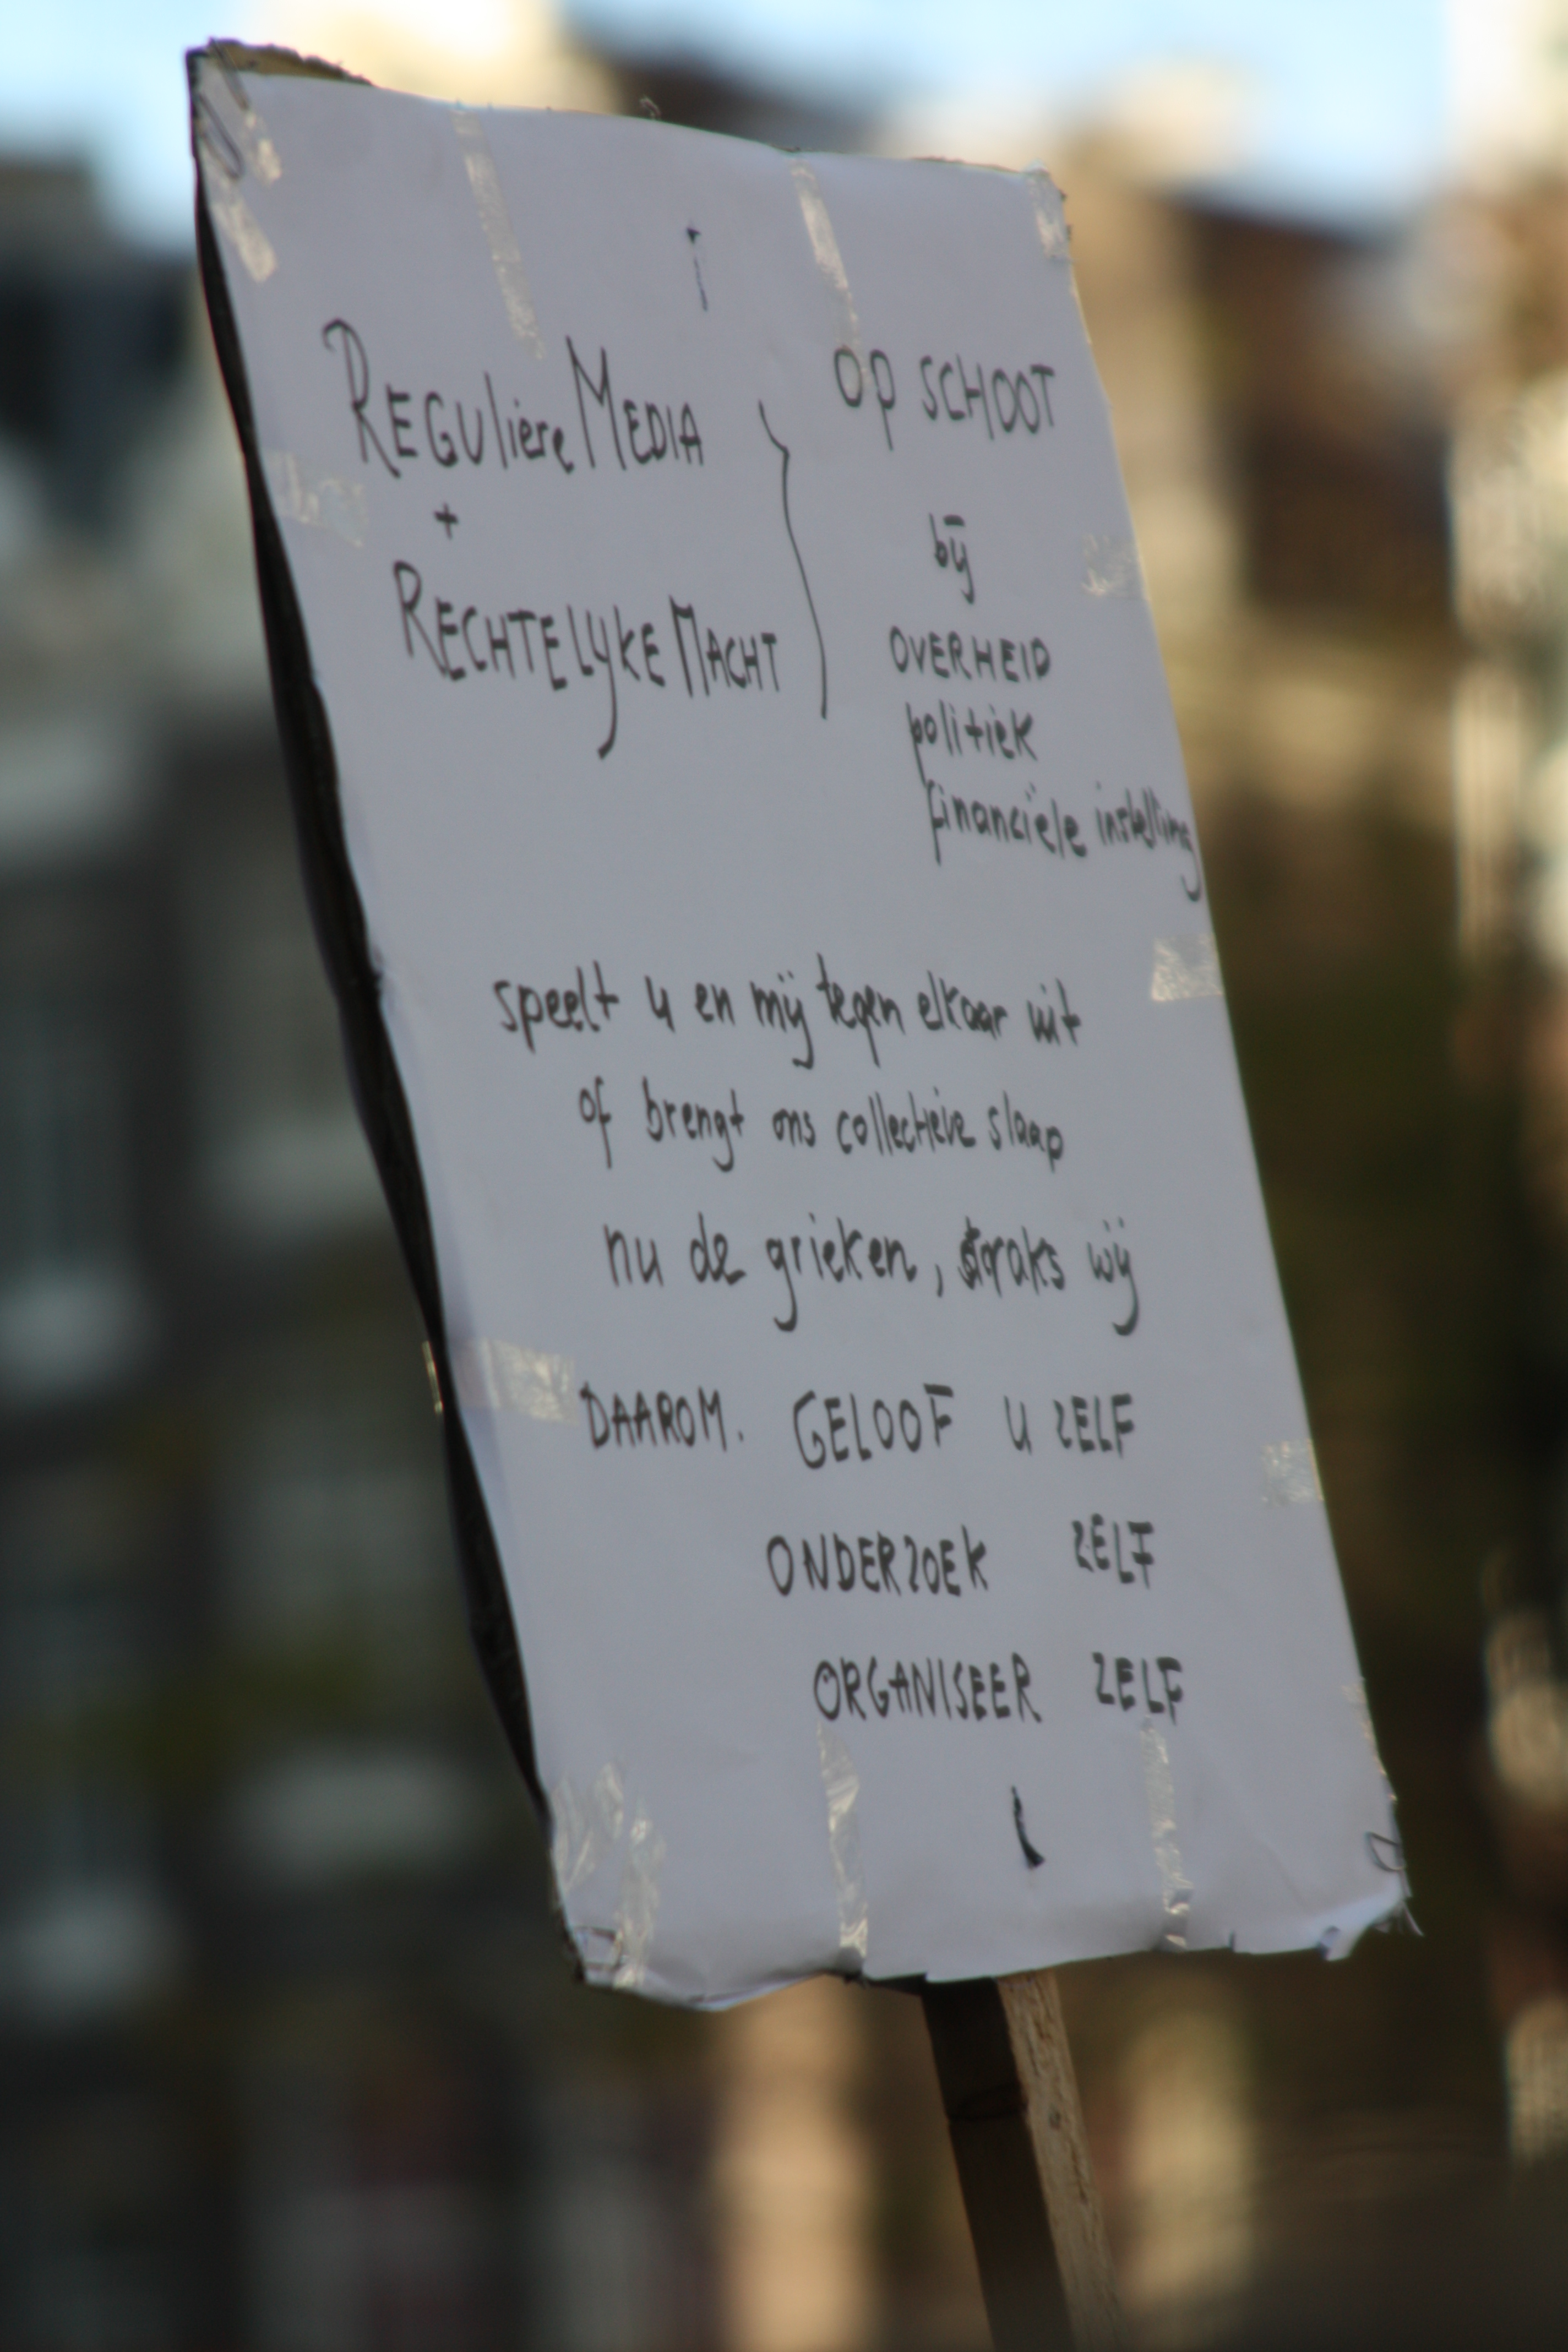 REGUlière MEDIA
+
RECHTELYKE MACHT
OP SCHOOT
bij
OVERHEID
politiek
financiële instelling
speelt u en mij tegen elkaar uit
of brengt ons collectieve slaap
nu de grieken, straks wij
DAAROM. GELOOF U ZELF
ONDERZOEK ZELF
ORGANISEER ZELF